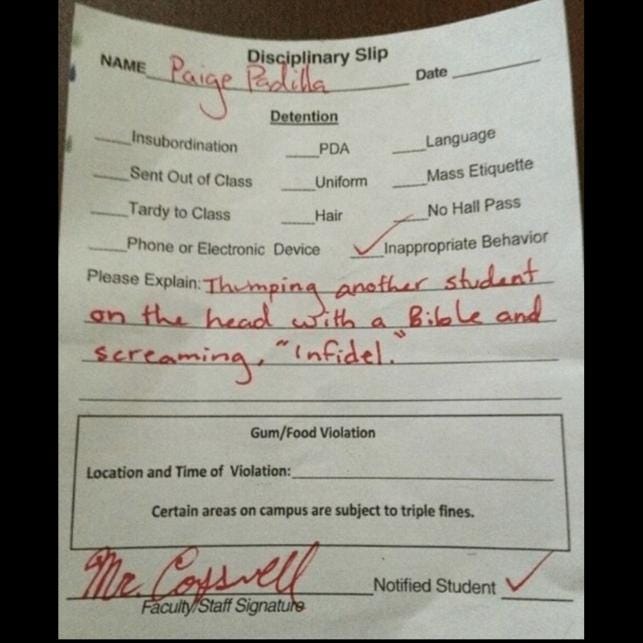 Disciplinary Slip
NAME Paige Padilla Date
Detention
Insubordination PDA Language
Sent Out of Class Uniform Mass Etiquette
Tardy to Class Hair No Hall Pass
Phone or Electronic Device ✓ Inappropriate Behavior
Please Explain: Thumping another student
on the head with a Bible and
screaming, "Infidel."
Gum/Food Violation
Location and Time of Violation:
Certain areas on campus are subject to triple fines.
Mr. Coswell Notified Student ✓
Faculty/Staff Signature